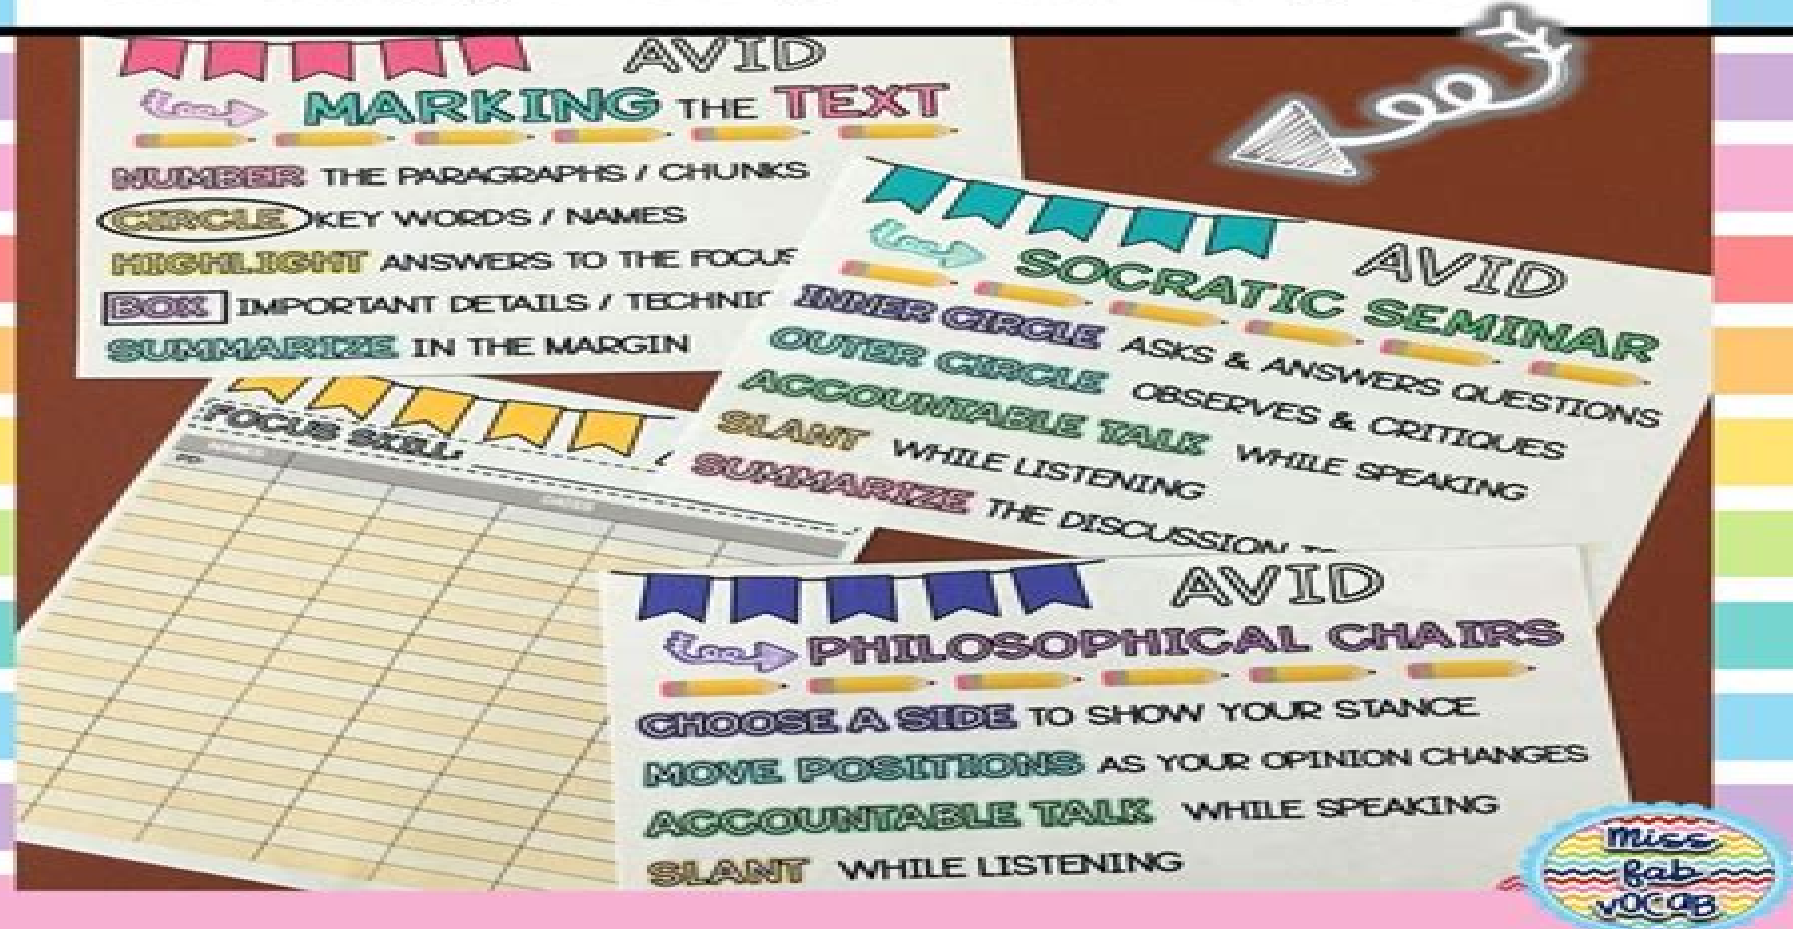 AVID
MARKING THE TEXT
NUMBER THE PARAGRAPHS / CHUNKS
CIRCLE KEY WORDS / NAMES
HIGHLIGHT ANSWERS TO THE FOCUS
BOX IMPORTANT DETAILS /
SUMMARIZE IN THE MARGIN
AVID
SOCRATIC SEMINAR
INNER CIRCLE ASKS & ANSWERS QUESTIONS
OUTER CIRCLE OBSERVES & CRITIQUES
ACCOUNTABLE TALK WHILE SPEAKING
SLANT WHILE LISTENING
SUMMARIZE THE DISCUSSION
FOCUS SKILL:
AVID
PHILOSOPHICAL CHAIRS
CHOOSE A SIDE TO SHOW YOUR STANCE
MOVE POSITIONS AS YOUR OPINION CHANGES
ACCOUNTABLE TALK WHILE SPEAKING
SLANT WHILE LISTENING
miss
fab
vocab